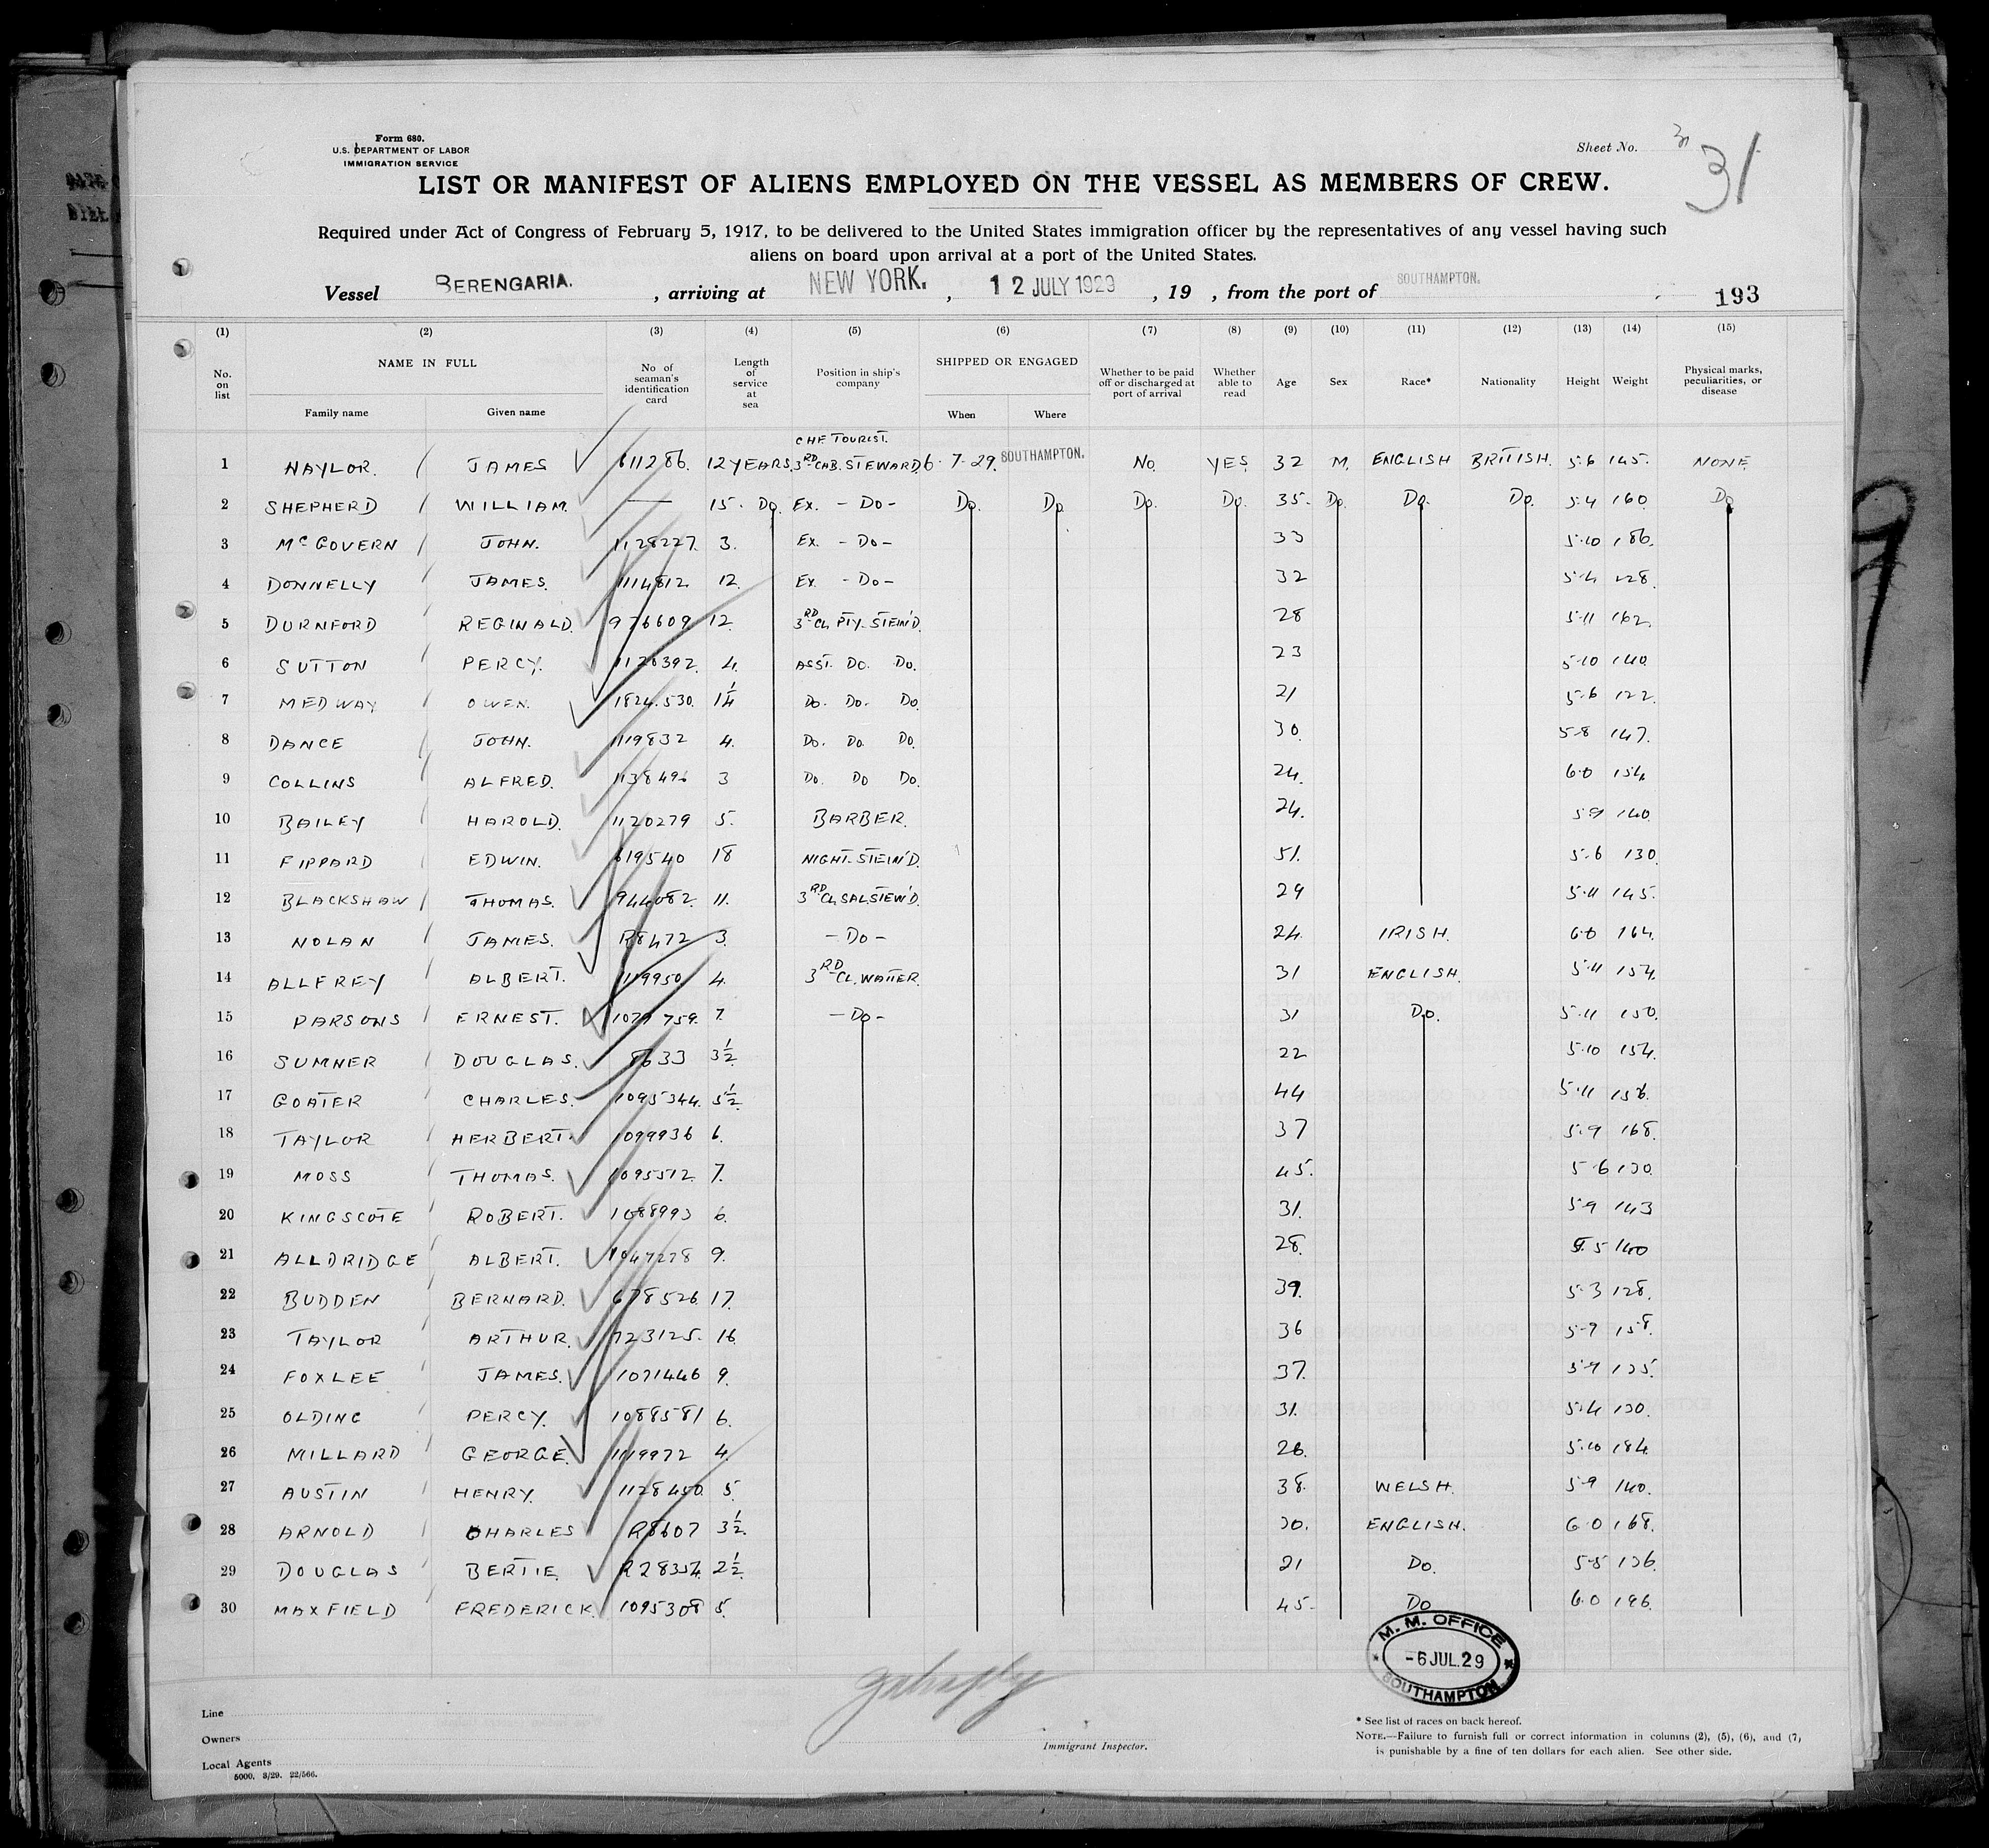 Form 680.
U.S. DEPARTMENT OF LABOR
IMMIGRATION SERVICE
Sheet No. 31
31
LIST OR MANIFEST OF ALIENS EMPLOYED ON THE VESSEL AS MEMBERS OF CREW.
Required under Act of Congress of February 5, 1917, to be delivered to the United States immigration officer by the representatives of any vessel having such
aliens on board upon arrival at a port of the United States.
Vessel BERENGARIA. , arriving at NEW YORK. , 12 JULY 1929 , 19 , from the port of SOUTHAMPTON.
193
(1) (2) (3) (4) (5) (6) (7) (8) (9) (10) (11) (12) (13) (14) (15)
No. on list NAME IN FULL Family name Given name No of seaman's identification card Length of service at sea Position in ship's company SHIPPED OR ENGAGED When Where Whether to be paid off or discharged at port of arrival Whether able to read Age Sex Race* Nationality Height Weight Physical marks, peculiarities, or disease
CHF. TOURIST.
1 NAYLOR. JAMES 611286. 12 YEARS. 3RD CAB. STEWARD. 6. 7. 29. SOUTHAMPTON. NO. YES 32 M. ENGLISH BRITISH. 5.6 145. NONE
2 SHEPHERD WILLIAM. — 15. DO. EX. - DO - DO. DO. DO. DO. 35. DO. DO. DO. 5.4 160. DO
3 McGOVERN JOHN. 1128227. 3. EX. - DO - 33 5.10 186.
4 DONNELLY JAMES. 1114812. 12. EX. - DO - 32 5.4 128.
5 DURNFORD REGINALD. 976609 12. 3RD CL. PTY. STEW'D. 28 5.11 162.
6 SUTTON PERCY. 1120392. 4. ASST. DO. DO. 23 5.10 140.
7 MEDWAY OWEN. 1824.530. 1¼ DO. DO. DO. 21 5.6 122.
8 DANCE JOHN. 1119832 4. DO. DO. DO. 30. 5.8 147.
9 COLLINS ALFRED. 1138496 3 DO. DO DO. 24. 6.0 154
10 BAILEY HAROLD. 1120279 5. BARBER. 24. 5.9 140.
11 FIPPARD EDWIN. 619540 18 NIGHT. STEW'D. 51. 5.6 130.
12 BLACKSHAW THOMAS. 944082. 11. 3RD CL. SAL. STEW'D. 29 5.11 145.
13 NOLAN JAMES. R8472 3. - DO - 24 IRISH. 6.0 164.
14 ALLFREY ALBERT. 1119950 4. 3RD CL. WAITER. 31 ENGLISH. 5.11 154.
15 PARSONS ERNEST. 759. 7. - DO - 31 DO. 5.11 150.
16 SUMNER DOUGLAS. 8633 3½ 22 5.10 154.
17 GOATER CHARLES. 1095344. 5½ 44 5.11 156.
18 TAYLOR HERBERT. 1099936 6. 37 5.9 168.
19 MOSS THOMAS. 1095512 7. 45. 5.6 130.
20 KINGSCOTE ROBERT. 1088993 6. 31. 5.9 143
21 ALLDRIDGE ALBERT. 1047278 9. 28. 5.5 140
22 BUDDEN BERNARD. 678526 17. 39. 5.3 128.
23 TAYLOR ARTHUR. 723125. 16. 36 158.
24 FOXLEE JAMES. 1071446 9. 37. 135.
25 OLDING PERCY. 1088581 6. 31. 5.4 130.
26 MILLARD GEORGE. 1119972 4. 26. 5.10 184.
27 AUSTIN HENRY. 1128450. 5. 38. WELSH. 5.9 140.
28 ARNOLD CHARLES R8607 3½. 30. ENGLISH. 6.0 168.
29 DOUGLAS BERTIE. R28354. 2½ 21 DO. 5.5 136.
30 MAXFIELD FREDERICK. 1095308 5. 45. DO 6.0 196.
M. M. OFFICE
-6 JUL. 29
SOUTHAMPTON
Line
Owners
Local Agents
5000. 3/29. 22/566.
Immigrant Inspector.
* See list of races on back hereof.
NOTE.—Failure to furnish full or correct information in columns (2), (5), (6), and (7,
is punishable by a fine of ten dollars for each alien. See other side.